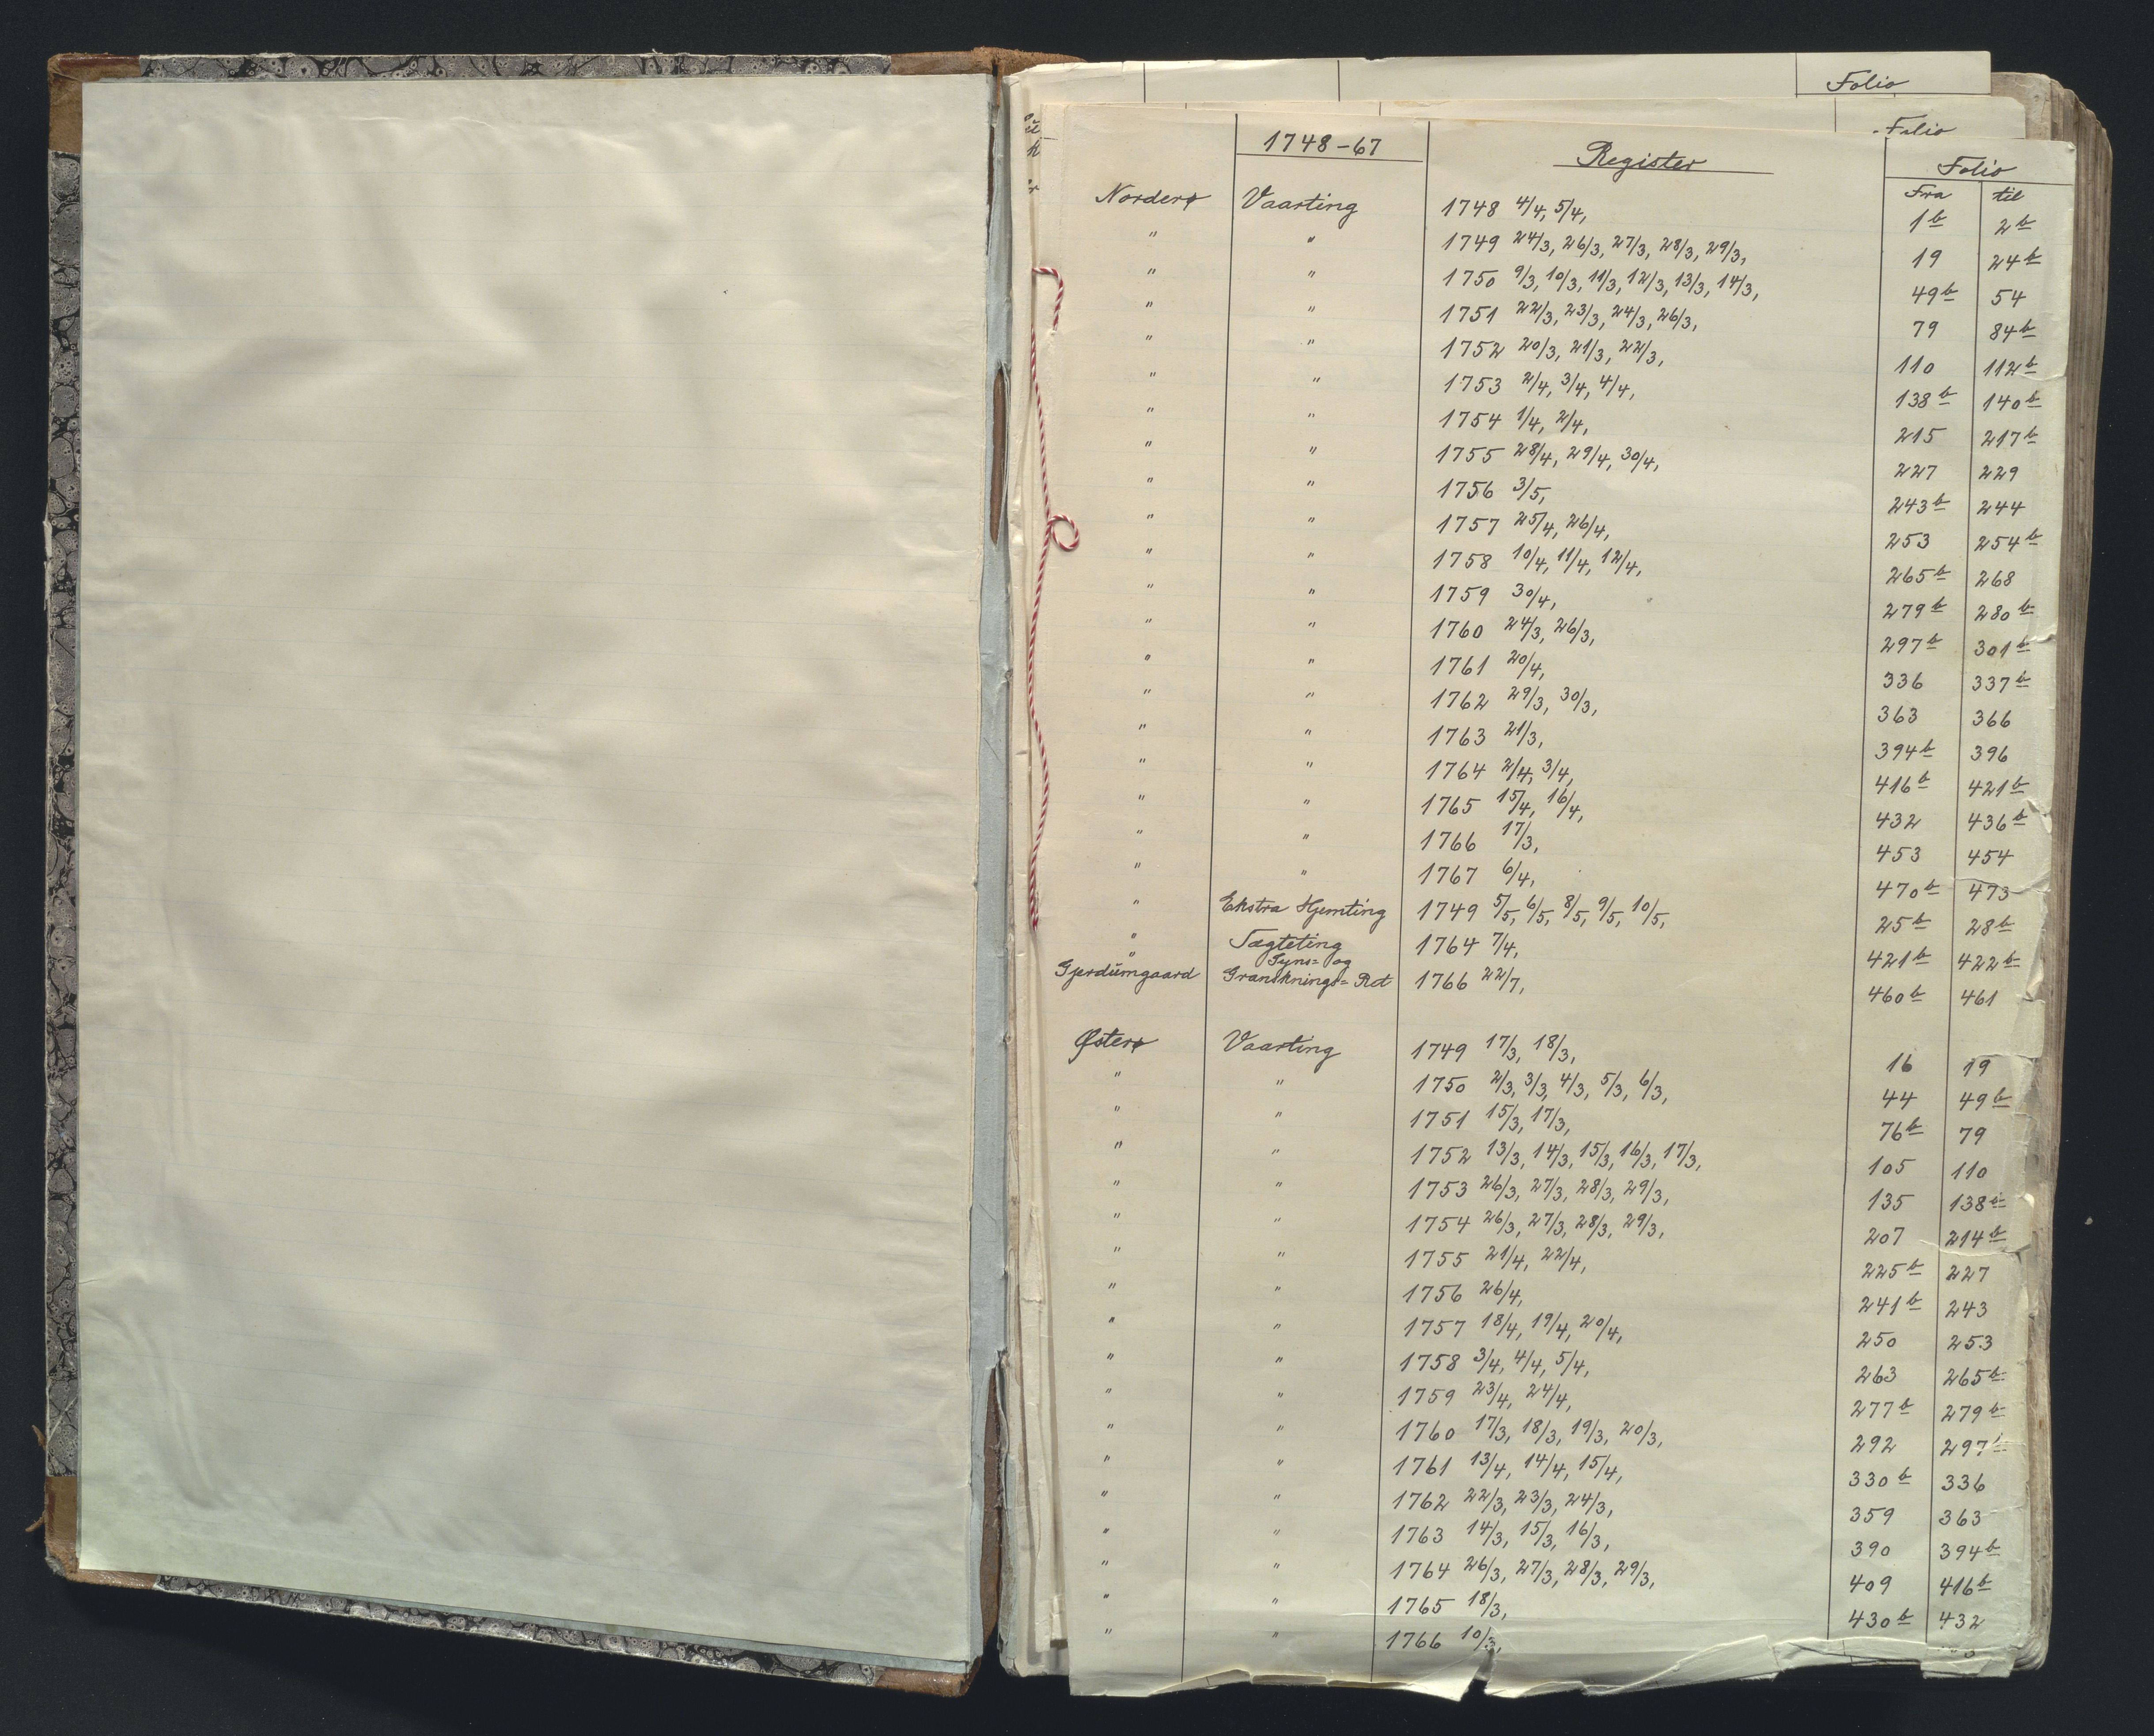 Folio
Folio
1748-67 Register Folio
Fra til
Norderø Vaarting 1748 4/4, 5/4, 1b 2b
" " 1749 24/3, 26/3, 27/3, 28/3, 29/3, 19 24b
" " 1750 9/3, 10/3, 11/3, 12/3, 13/3, 14/3, 49b 54
" " 1751 22/3, 23/3, 24/3, 26/3, 79 84b
" " 1752 20/3, 21/3, 22/3, 110 112b
" " 1753 2/4, 3/4, 4/4, 138b 140b
" " 1754 1/4, 2/4, 215 217b
" " 1755 28/4, 29/4, 30/4, 227 229
" " 1756 3/5, 243b 244
" " 1757 25/4, 26/4, 253 254b
" " 1758 10/4, 11/4, 12/4, 265b 268
" " 1759 30/4, 279b 280b
" " 1760 24/3, 26/3, 297b 301b
" " 1761 20/4, 336 337b
" " 1762 29/3, 30/3, 363 366
" " 1763 21/3, 394b 396
" " 1764 2/4, 3/4, 416b 421b
" " 1765 15/4, 16/4, 432 436b
" " 1766 17/3, 453 454
" " 1767 6/4, 470b 473
" Ekstra Hjemting 1749 5/5, 6/5, 8/5, 9/5, 10/5, 25b 28b
" Tægteting 1764 7/4, 421b 422b
" Syns= og
Gjerdumgaard Gransknings=Ret 1766 22/7, 460b 461
Østerø Vaarting 1749 17/3, 18/3, 16 19
" " 1750 2/3, 3/3, 4/3, 5/3, 6/3, 44 49b
" " 1751 15/3, 17/3, 76b 79
" " 1752 13/3, 14/3, 15/3, 16/3, 17/3, 105 110
" " 1753 26/3, 27/3, 28/3, 29/3, 135 138b
" " 1754 26/3, 27/3, 28/3, 29/3, 207 214b
" " 1755 21/4, 22/4, 225b 227
" " 1756 26/4, 241b 243
" " 1757 18/4, 19/4, 20/4, 250 253
" " 1758 3/4, 4/4, 5/4, 263 265b
" " 1759 23/4, 24/4, 277b 279b
" " 1760 17/3, 18/3, 19/3, 20/3, 292 297b
" " 1761 13/4, 14/4, 15/4, 330b 336
" " 1762 22/3, 23/3, 24/3, 359 363
" " 1763 14/3, 15/3, 16/3, 390 394b
" " 1764 26/3, 27/3, 28/3, 29/3, 409 416b
" " 1765 18/3, 430b 432
" " 1766 10/3,